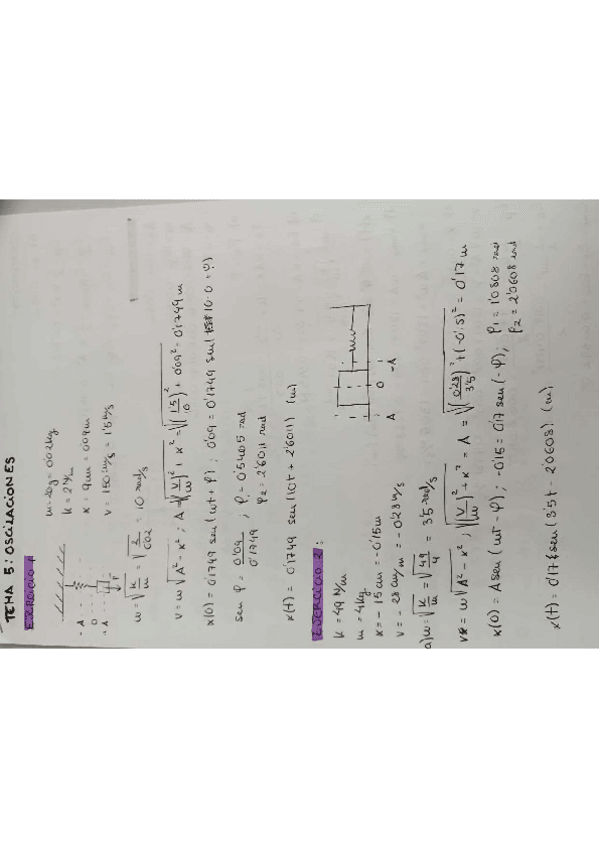 TEMA 5: OSCILACIONES
EJERCICIO 1
-A
O
+A
m=20g=0'02kg
k=2N/m
x=9cm=0'09m
v=150cm/s=1'5m/s
w=√(k/m)=√(2/0'02)=10 rad/s
v=w√(A²-x²); A=√((v/w)²+x²)=√((1'5/10)²+0'09²)=0'1749m
x(0)=0'1749 sen(wt+φ); 0'09=0'1749 sen(10·0+φ)
sen φ=0'09/0'1749; φ₁=0'5405 rad
φ₂=2'6011 rad
x(t)=0'1749 sen(10t+2'6011) (m)
EJERCICIO 2:
k=49N/m
m=4kg
x=-15cm=-0'15m
v=-28cm/s=-0'28m/s
A O -A
a) w=√(k/m)=√(49/4)=3'5 rad/s
v=w√(A²-x²); √((v/w)²+x²=A=√((0'28/3'5)²+(-0'15)²=0'17m
x(0)=A sen(wt-φ); -0'15=0'17 sen(-φ); φ₁=1'0808 rad
φ₂=2'0608 rad
x(t)=0'17 sen(3'5t-2'0608) (m)